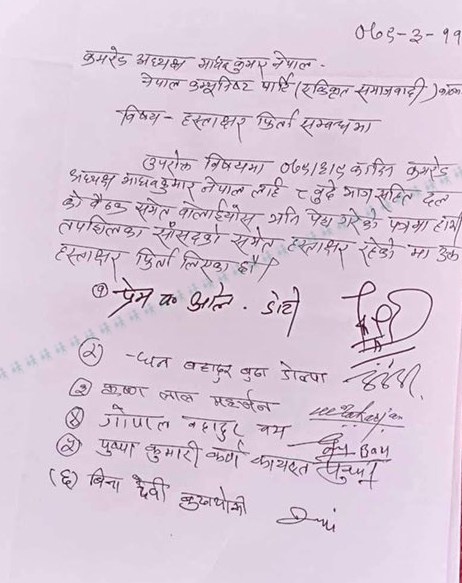 ०७९-३-११
कमरेड अध्यक्ष माधव कुमार नेपाल.
नेपाल कम्युनिष्ट पार्टि (एकिकृत समाजवादी)
विषय - हस्ताक्षर फिर्ता सम्बन्धमा
उपरोक्त विषयमा ०७९।३।९ का दिन कमरेड
अध्यक्ष माधवकुमार नेपाल लाई ८ बुँदे माग सहित दल
को बैठक समेत बोलाईयोस भनि पेश गरेको पत्रमा हामी
तपशिलका साँसदको समेत हस्ताक्षर रहेको मा उक्त
हस्ताक्षर फिर्ता लिएका छौं।
१ प्रेम ब. आले. डोटी
२ धन बहादुर बुढा डोल्पा
३ कृष्ण लाल महर्जन
४ गोपाल बहादुर बम
५ पुष्पा कुमारी कर्ण कायस्त
(६) बिना देवी बुढाथोकी